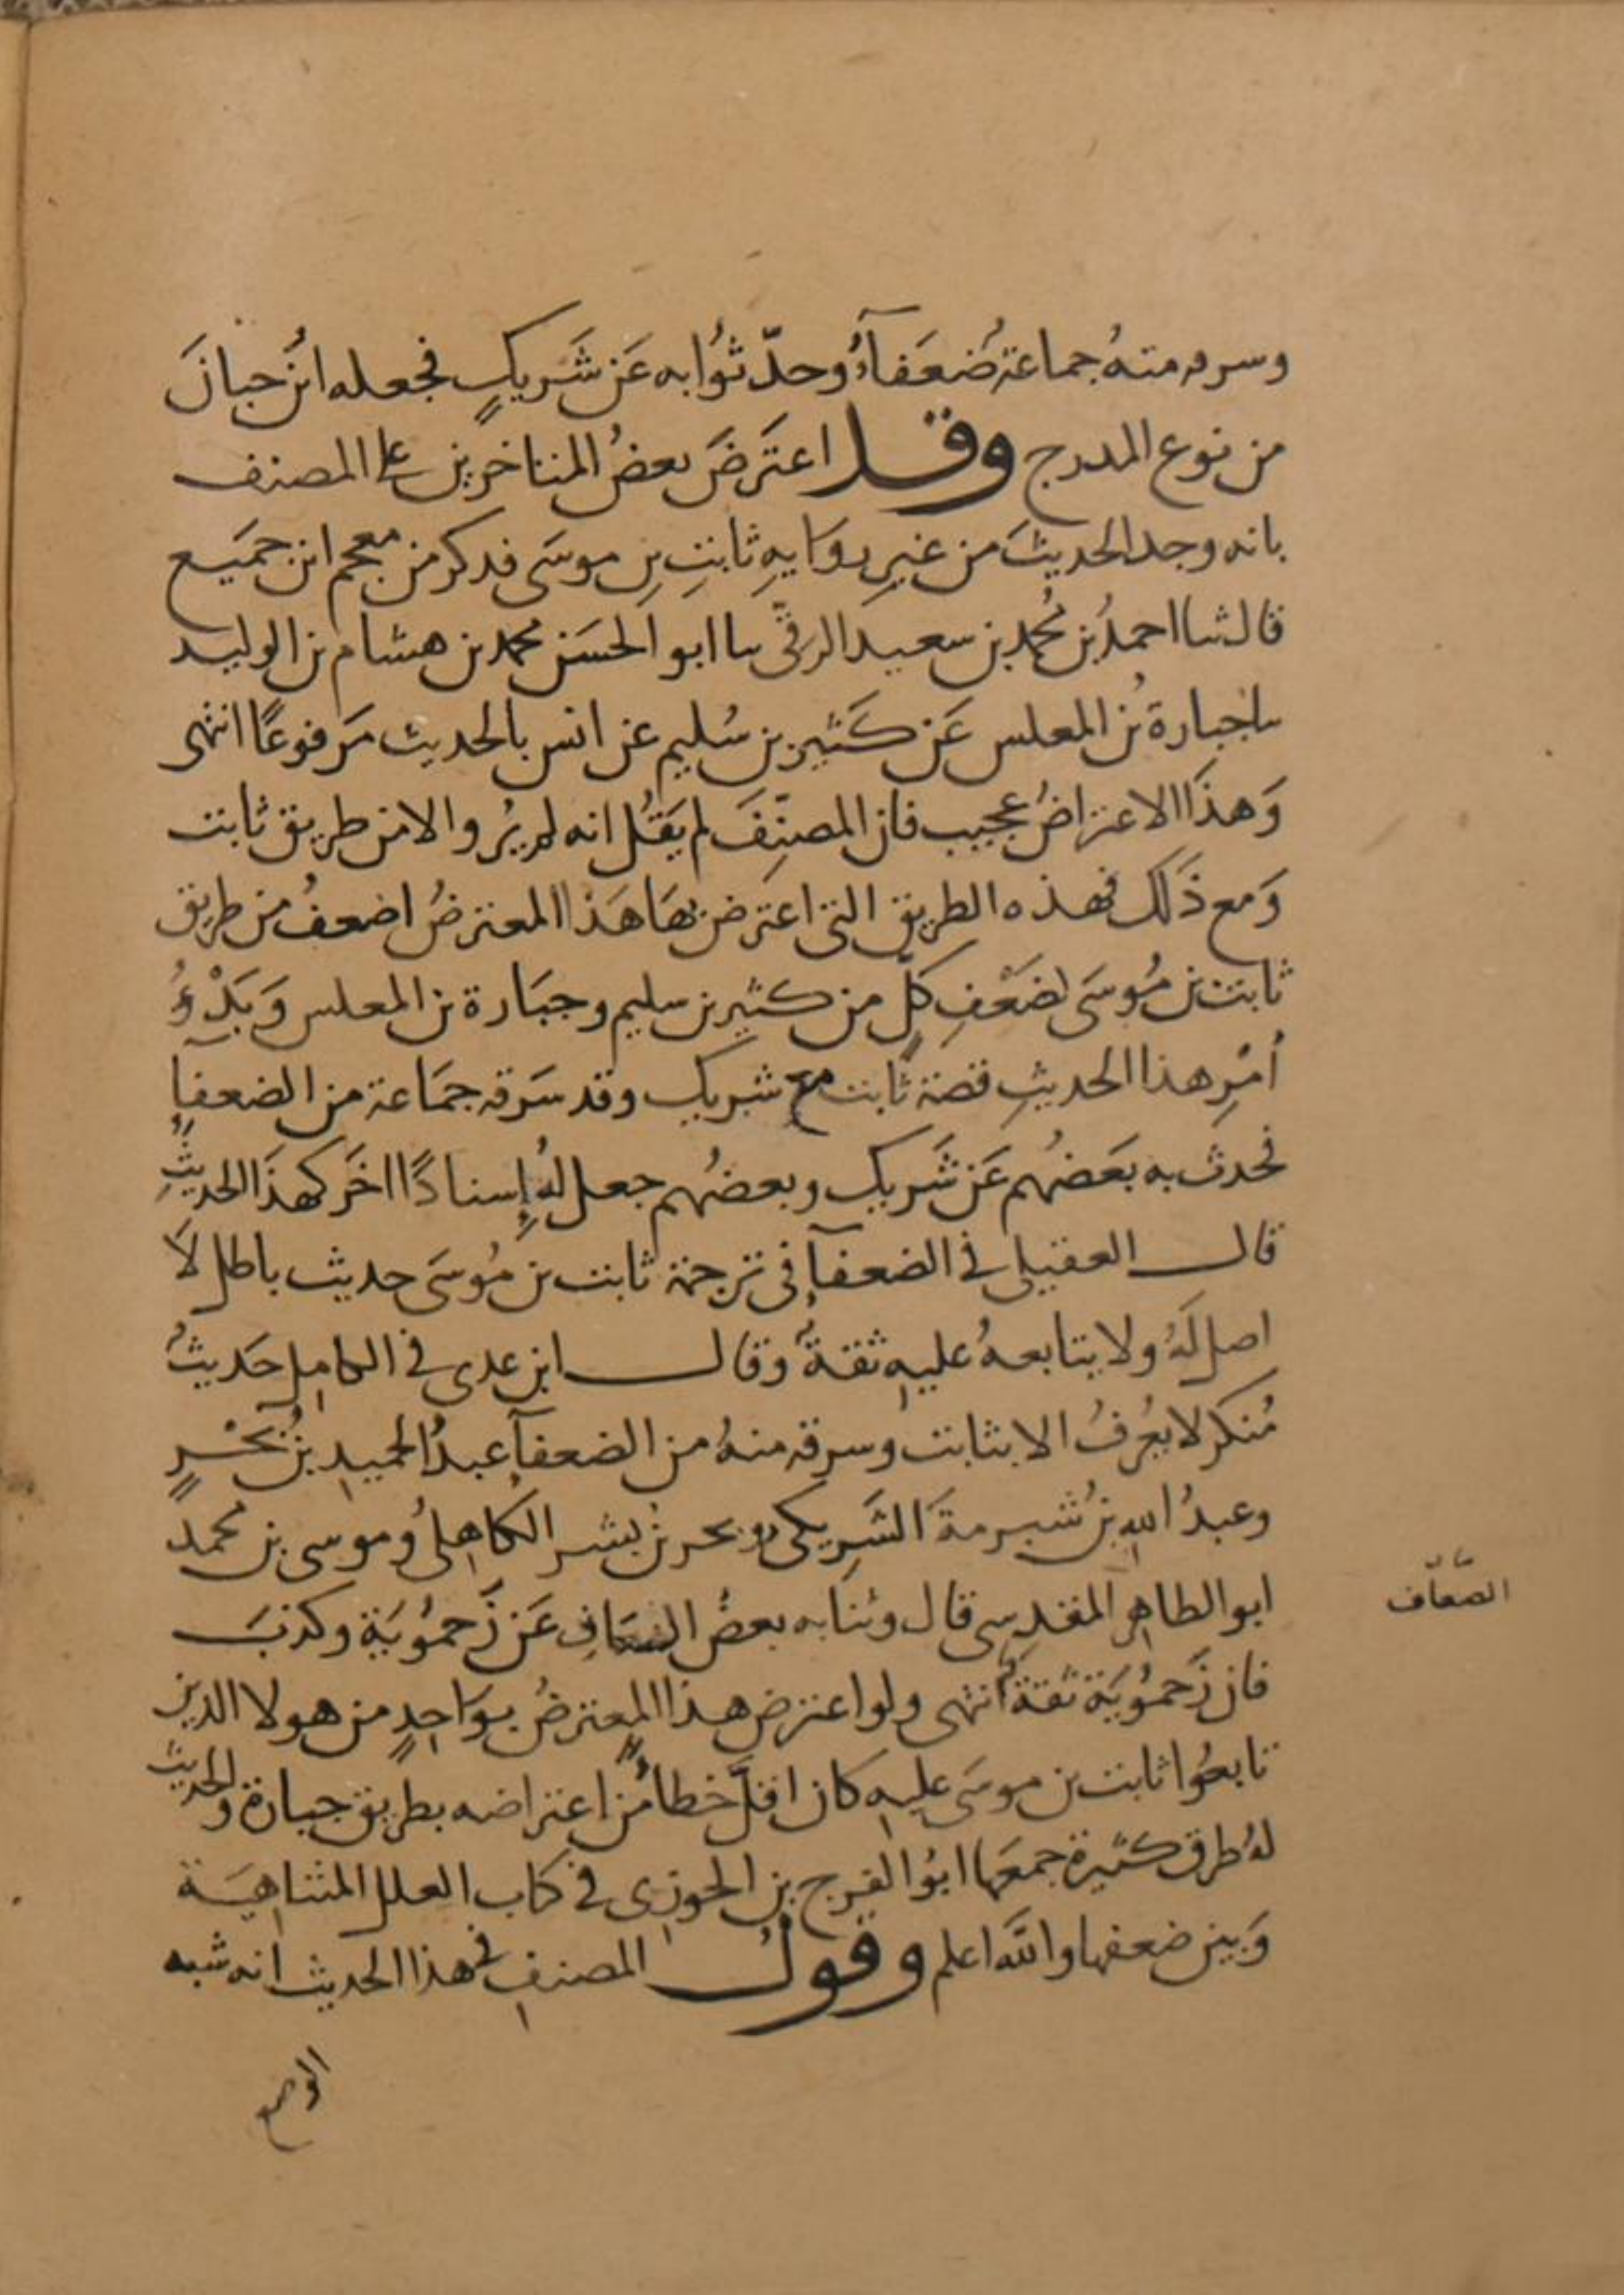 وسرقه منهُ جماعة ضُعَفَآءُ وحدّثوُا به عَن شَريكٍ فجعله ابنُ حبانَ
من نوع المدرج وقد اعتَرضَ بعضُ المتاخرين على المصنف
بانه وجد الحديثَ من غيرِ روَايهِ ثابتِ بنِ موسَى فذكر من معجم ابن جُمَيع
قال ثنا احمدُ بن مُحمد بن سعيد الرقّي ثنا ابو الحسَن محمد بن هشام بن الوليد
ثنا جبارة بنُ المغلس عَن كَثير بن سُليم عن انس بالحديث مَرفوعًا انتهى
وَهذَا الاعتراضُ عجيب فان المصنِّفَ لم يَقُل انه لم يُرو الا من طريق ثابت
وَمع ذَلك فهذه الطريق التى اعتَرض بهَا هَذا المعترضُ اضعفُ من طريق
ثابت بن مُوسَى لضَعْفِ كلٍّ من كثير بن سليم وجبَارة بن المغلس وَبَدْؤُ
أمْرِ هذا الحديثِ قصة ثابت مع شريك وقد سَرقه جمَاعة من الضعفآءِ
فحدث به بَعَضُهم عَن شَريك وبعضُهم جعل لهُ إِسنادًا اخَر كهذَا الحديثِ
قال العقيلى فى الضعفآءِ فى ترجمة ثابت بن مُوسَى حديث باطل لاَ
اصل لَهُ ولا يتابعهُ عليهِ ثقةٌ وقال ابن عدى فى الكامِل حَديثٌ
مُنكر لا يُعرفُ الا بثابت وسرقه منهُ من الضعفآءِ عبدُ الحميد بنُ بَحْرٍ
وعبدُ اللهِ بنُ شبرمةَ الشَرِيكي و بحر بن بشر الكَاهِلىُ وموسى بن محمد
ابو الطاهر المقدسى قال وثنا به بعضُ الضعَافِ عَن زَحمُوُيَة وكذبَ
الضعّاف
فان زَحمُوُيَة ثقةٌ انتهى ولو اعترض هذا المعترضُ بوَاحِدٍ من هولا الذين
تابعُوا ثابت بن موسَى عليهِ كان اقلَّ خطأً من اعتراضه بطريق جبارة والحديث
لهُ طرق كثيرة جمعَها ابوُ الفرج بن الجوزى فى كتاب العلل المتناهِيَة
وَبين ضعفها واللَّه اعلم وقولُ المصنفِ فى هذا الحديث انه شبه
الوضع